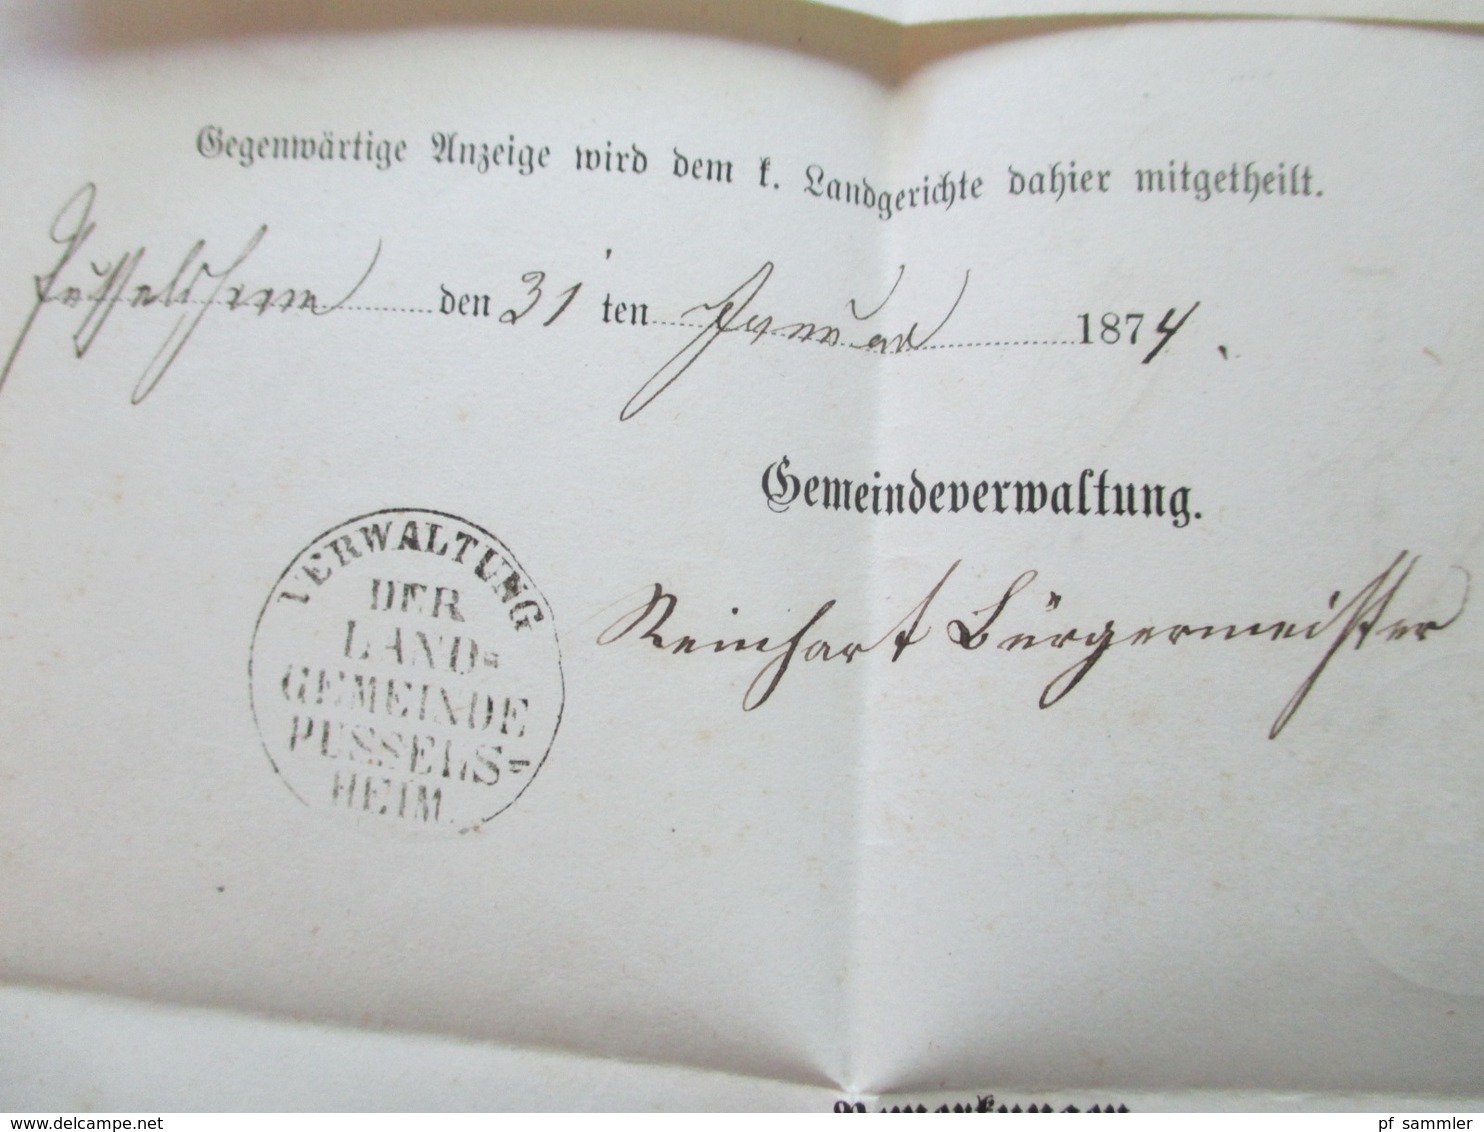 Gegenwärtige Anzeige wird dem k. Landgerichte dahier mitgetheilt.
Püsselsheim den 31 ten Januar 1874.
Gemeindeverwaltung.
Reinhart Bürgermeister
VERWALTUNG
DER
LAND-
GEMEINDE
PUSSELS-
HEIM.
Bemerkungen
© www.delcampe.net
pf_sammler